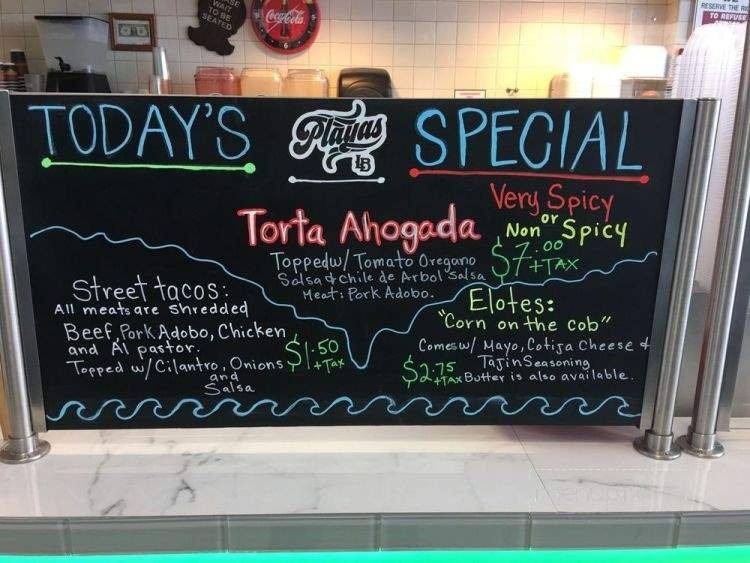 PLEASE
WAIT
TO BE
SEATED
Coca-Cola
RESERVE THE
TO REFUSE
TODAY'S
Playas
LB
SPECIAL
Torta Ahogada
Very Spicy
or
Non Spicy
Topped w/ Tomato Oregano
Salsa & chile de Arbol Salsa
Meat: Pork Adobo.
$7.00
+TAX
Street tacos:
All meats are Shredded
Beef, Pork Adobo, Chicken
and Al pastor.
Topped w/ Cilantro, Onions
and
Salsa
$1.50
+Tax
Elotes:
"Corn on the cob"
Comes w/ Mayo, Cotija Cheese +
Tajin Seasoning
$2.75
+TAX Butter is also available.